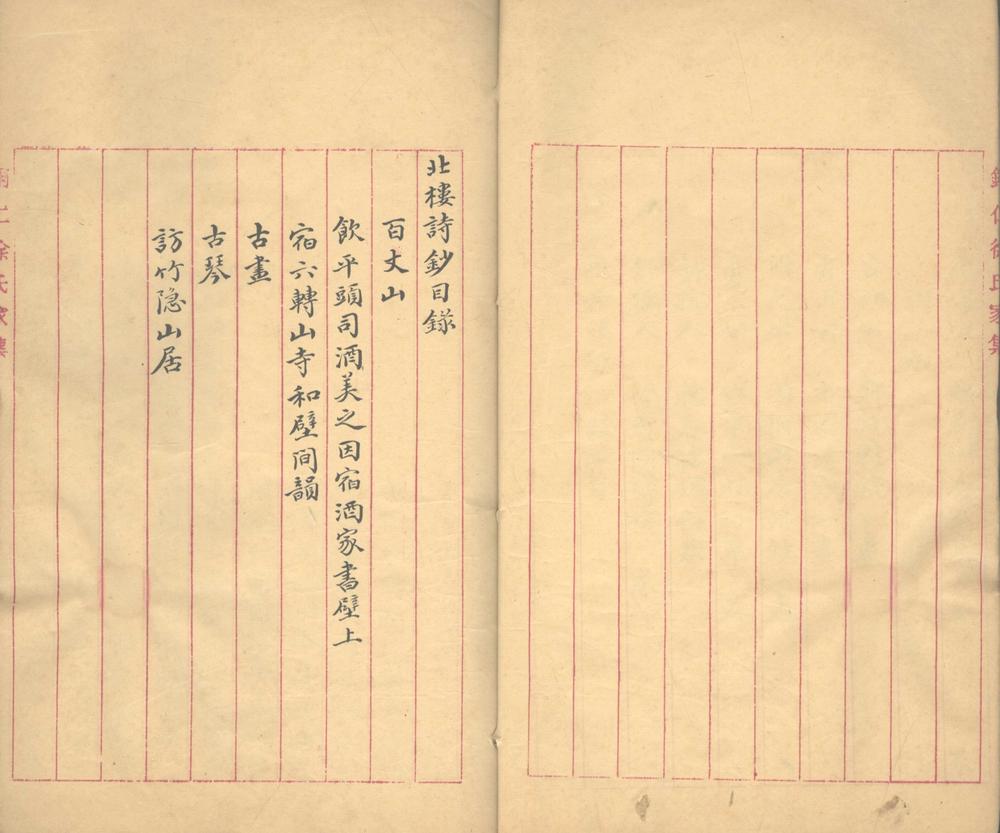 北樓詩鈔目錄
百丈山
飲平頭司酒美之因宿酒家書壁上
宿六轉山寺和壁間韻
古畫
古琴
訪竹隐山居
徐氏家集